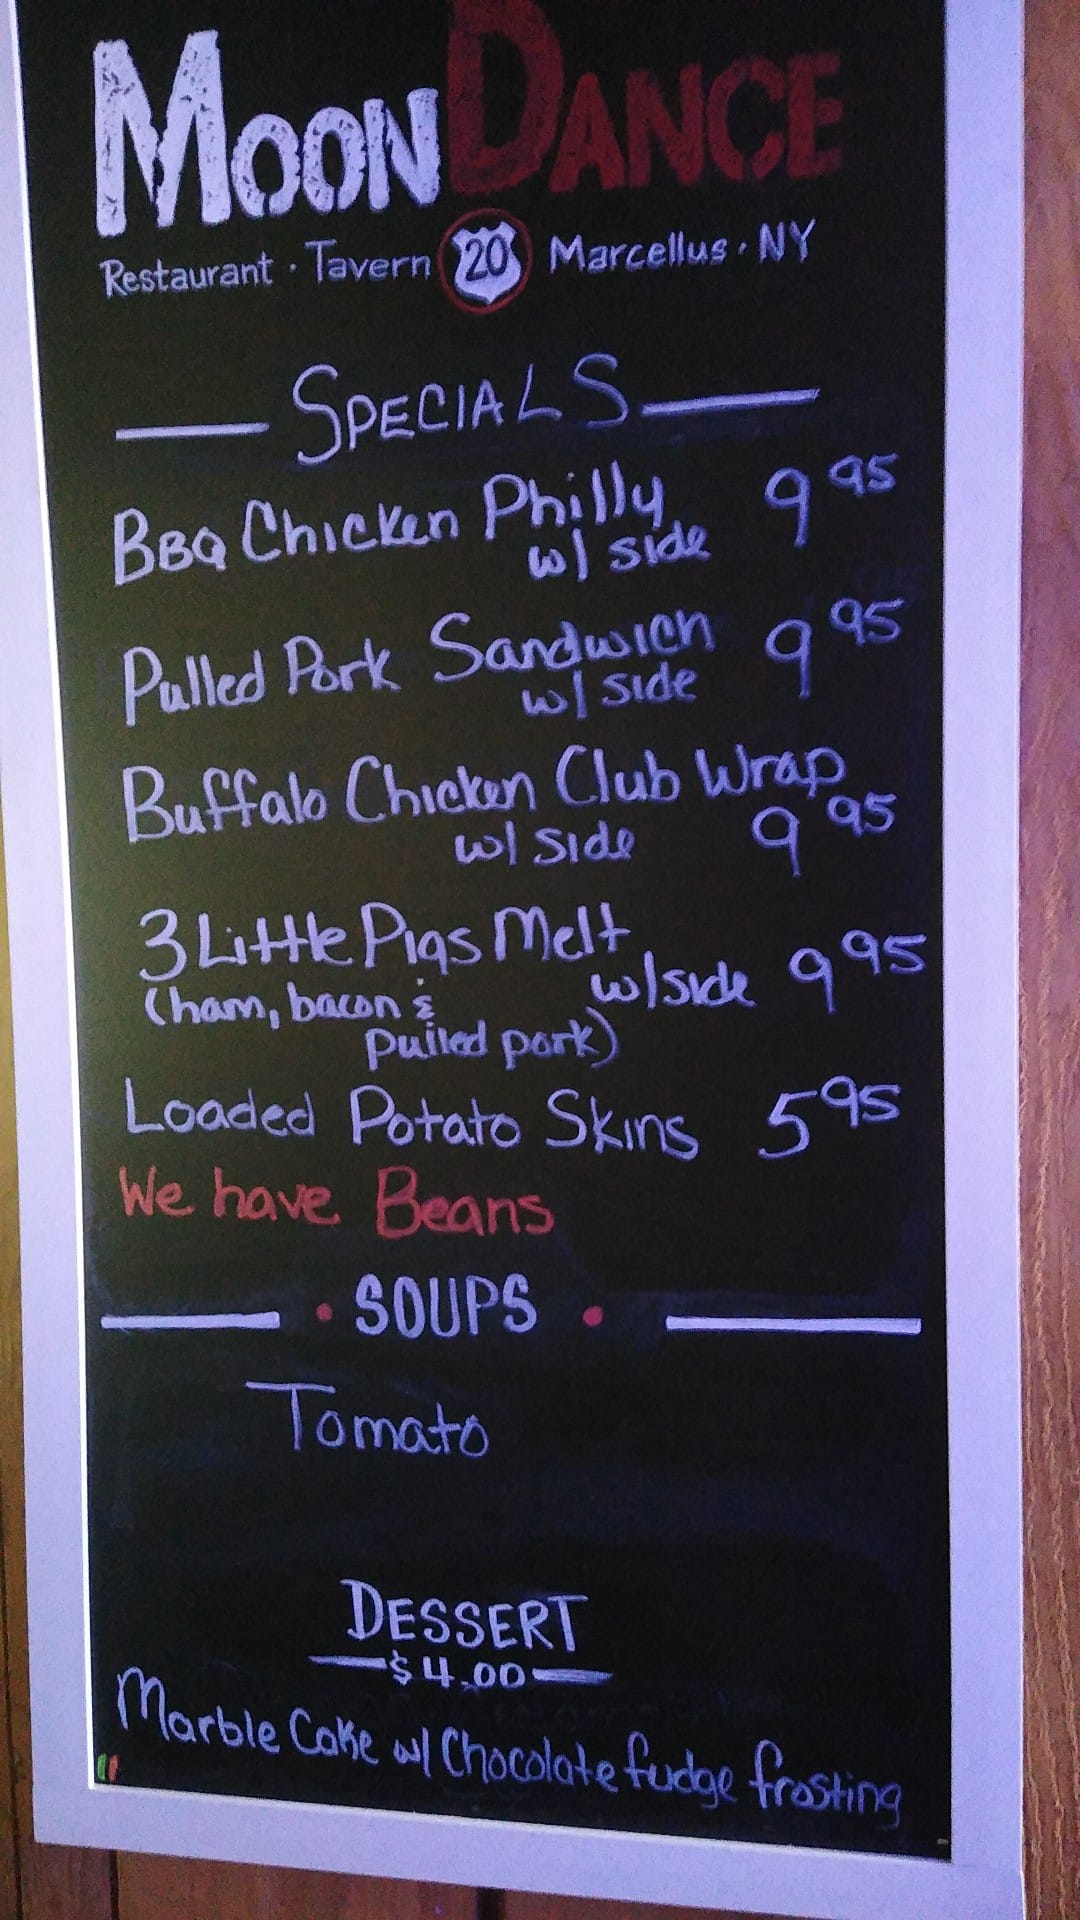 MOONDANCE
Restaurant · Tavern 20 Marcellus · NY
SPECIALS
BBQ Chicken Philly 9 95
w/ side
Pulled Pork Sandwich 9 95
w/ side
Buffalo Chicken Club Wrap
w/ side 9 95
3 Little Pigs Melt
w/side 9 95
(ham, bacon &
pulled pork)
Loaded Potato Skins 5 95
We have Beans
· SOUPS ·
Tomato
DESSERT
$4.00
Marble Cake w/ Chocolate fudge frosting